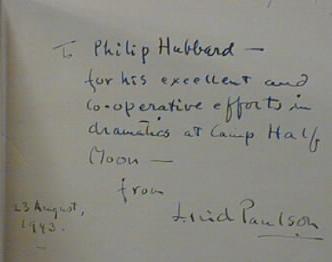 To Philip Hubbard —
for his excellent and
co-operative efforts in
dramatics at Camp Half
Moon —
from
Paulson
23 August,
1943.